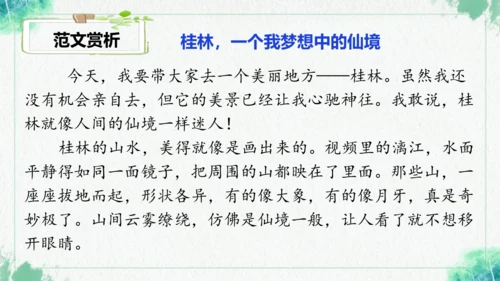 范文赏析
桂林，一个我梦想中的仙境
今天，我要带大家去一个美丽地方——桂林。虽然我还
没有机会亲自去，但它的美景已经让我心驰神往。我敢说，桂
林就像人间的仙境一样迷人！
桂林的山水，美得就像是画出来的。视频里的漓江，水面
平静得如同一面镜子，把周围的山都映在了里面。那些山，一
座座拔地而起，形状各异，有的像大象，有的像月牙，真是奇
妙极了。山间云雾缭绕，仿佛是仙境一般，让人看了就不想移
开眼睛。